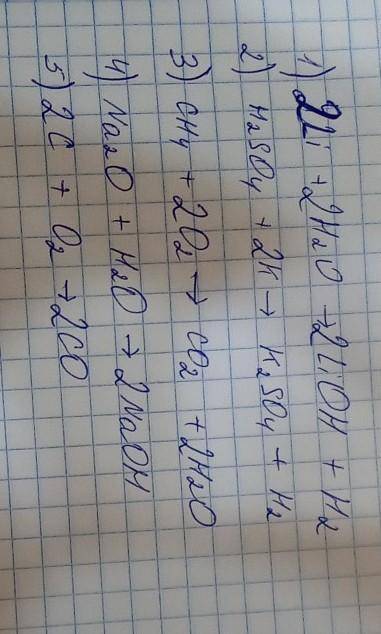 1) 2Li + 2H₂O → 2LiOH + H₂
2) H₂SO₄ + 2K → K₂SO₄ + H₂
3) CH₄ + 2O₂ → CO₂ + 2H₂O
4) Na₂O + H₂O → 2NaOH
5) 2C + O₂ → 2CO